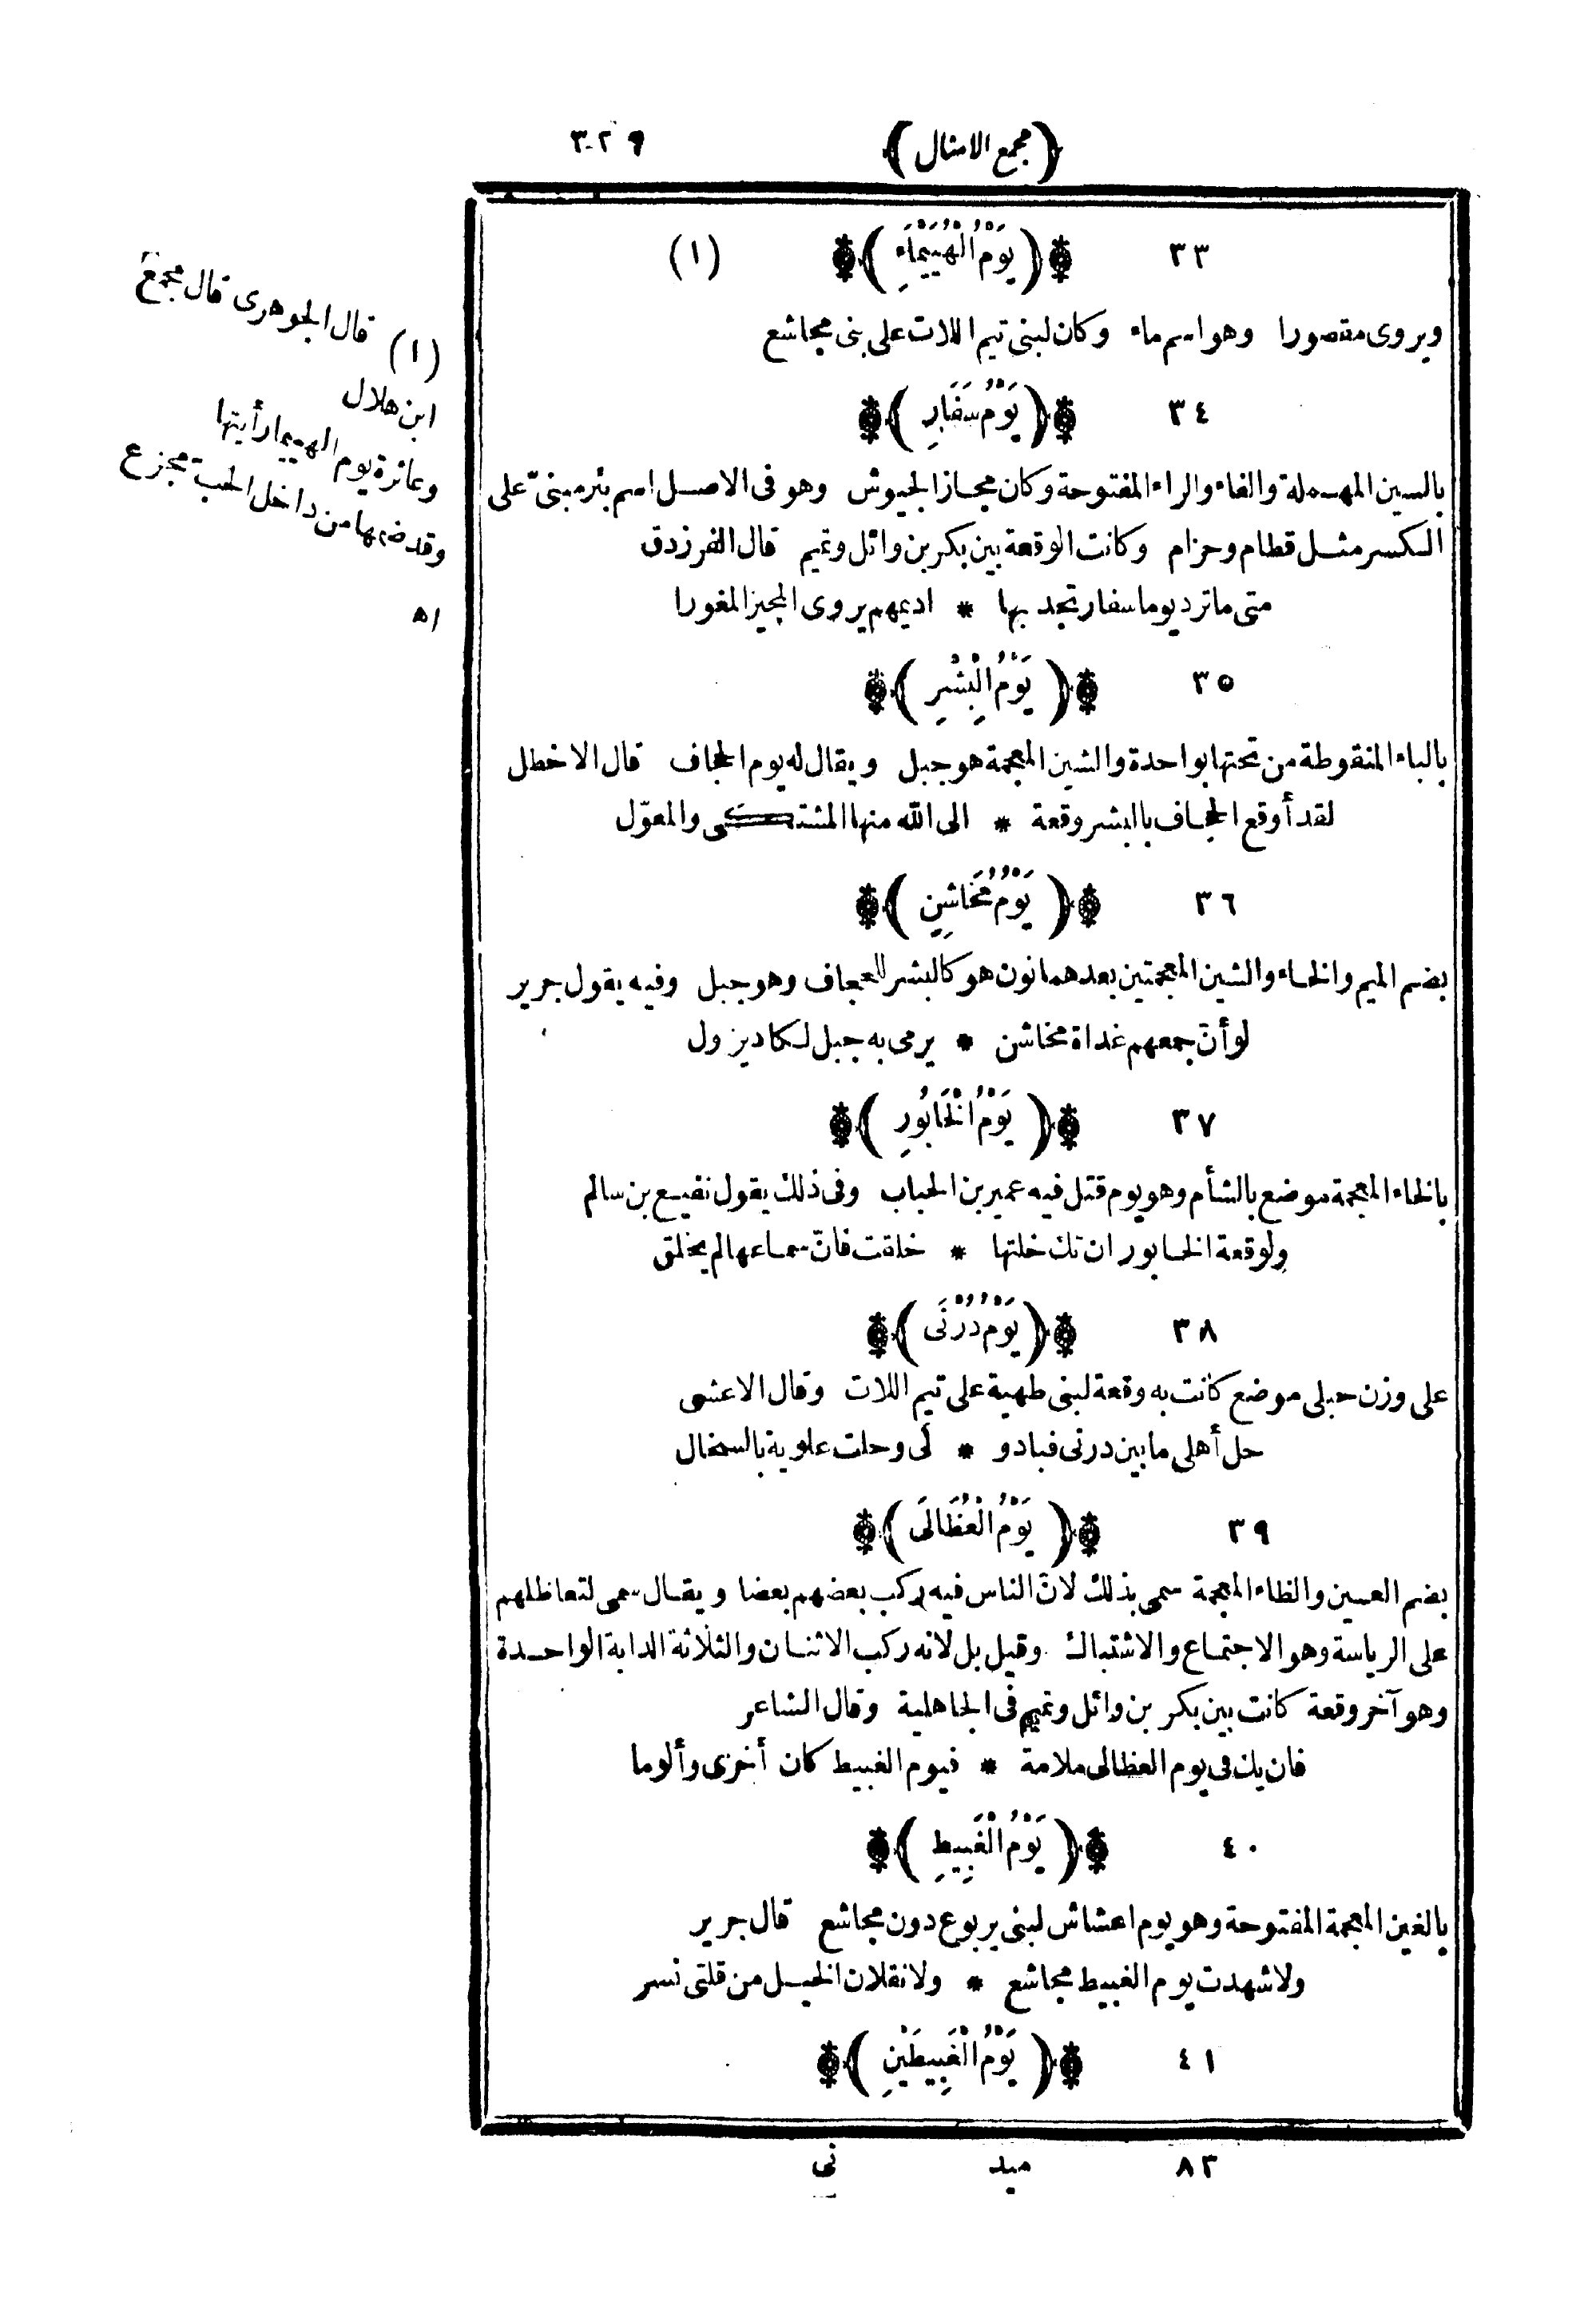 ﴿مجمع الامثال﴾ ٣٢٩
٣٣ ﴿ يَوْمُ الْهُيَيْمَاءِ ﴾ (١)
ويروى مقصورا وهو اسم ماء وكان لبنى تيم اللات على بنى مجاشع
٣٤ ﴿ يَوْمُ سَفَارِ ﴾
بالسين المهملة والفاء والراء المفتوحة وكان مجاز الجيوش وهو فى الاصل اسم بئر مبنىّ على
الكسر مثل قطام وحزام وكانت الوقعة بين بكر بن وائل وتميم قال الفرزدق
متى ما ترد يوما سفار تجد بها * اديهم يروى المجيز المغورا
٣٥ ﴿ يَوْمُ الْبِشْرِ ﴾
بالباء المنقوطة من تحتها بواحدة والشين المعجمة هو جبل ويقال له يوم الجحاف قال الاخطل
لقد أوقع الجحاف بالبشر وقعة * الى الله منها المشتكى والمعوّل
٣٦ ﴿ يَوْمُ مُخَاشِنِ ﴾
بضم الميم والخاء والشين المعجمتين بعدهما نون هو كالبشر للجحاف وهو جبل وفيه يقول جرير
لو أنّ جمعهم غداة مخاشن * يرمى به جبل لكاد يزول
٣٧ ﴿ يَوْمُ الْخَابُورِ ﴾
بالخاء المعجمة موضع بالشأم وهو يوم قتل فيه عمير بن الحباب وفى ذلك يقول نفيع بن سالم
ولوقعة الخابور ان تك خلتها * خلقت فانّ سماعها لم يخلق
٣٨ ﴿ يَوْمُ دُرْنَى ﴾
على وزن حبلى موضع كانت به وقعة لبنى طهية على تيم اللات وقال الاعشى
حل أهلى ما بين درنى فبادو * لى وحلت علوية بالسخال
٣٩ ﴿ يَوْمُ الْعُظَالَى ﴾
بضم العين والظاء المعجمة سمى بذلك لانّ الناس فيه ركب بعضهم بعضا ويقال سمى لتعاظلهم
على الرياسة وهو الاجتماع والاشتباك وقيل بل لانه ركب الاثنان والثلاثة الدابة الواحدة
وهو آخر وقعة كانت بين بكر بن وائل وتميم فى الجاهلية وقال الشاعر
فان يك فى يوم العظالى ملامة * فيوم الغبيط كان أخزى وألوما
٤٠ ﴿ يَوْمُ الْغَبِيطِ ﴾
بالغين المعجمة المفتوحة وهو يوم اعشاش لبنى يربوع دون مجاشع قال جرير
ولا شهدت يوم الغبيط مجاشع * ولا نقلان الخيل من قلتى نسر
٤١ ﴿ يَوْمُ الْغَبِيطَيْنِ ﴾
٨٣ ميد نى
(١) قال الجوهرى قال مجمع
ابن هلال
وعاثرة يوم الهييما رأيتها
وقد ضمها من داخل الحب مجزع
اه